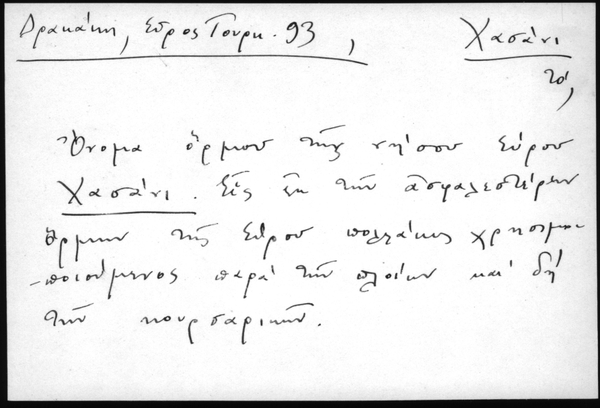 Δρακάκη, Σῦρος Τουρκ. 93, Χασάνι
τό,
Ὄνομα ὅρμου τῆς νήσου Σύρου
Χασάνι. Εἷς ἐκ τῶν ἀσφαλεστέρων
ὅρμων τῆς Σύρου πολλάκις χρησιμο-
-ποιούμενος παρά τῶν πλοίων καί δή
τῶν κουρσαρικῶν.